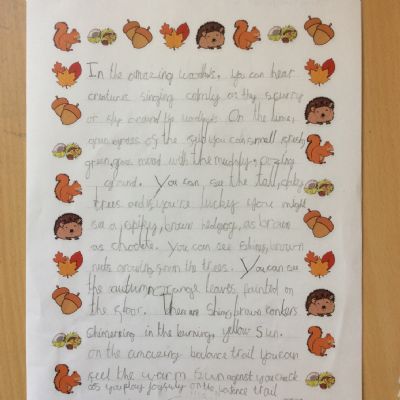 In the amazing woodlands, you can hear
creatures singing calmly as they scurry
or slip around the woodlands. On the lime,
green grass of the you can smell
green grass mixed with the muddy,
ground. You can see the tall,
trees and if you're lucky you might
see a spikey, brown hedgehog, as brown
as chocolate. You can see shiny, brown
nuts from the trees. You can see
the autumn orange leaves painted on
the floor. There are shiny brown konkers
shimmering in the burning, yellow sun.
on the amazing balance trail you can
feel the warm sun against your cheek
as you play joyfully on the balance trail